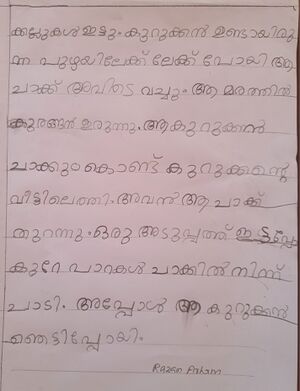 ക്കല്ലുകൾ ഇട്ടും. കുറുക്കൻ ഉണ്ടായിരു
ന്ന പുഴയിലേക്ക് ലേക്ക് പോയി ആ
ചാക്ക് അവിടെ വച്ചും. ആ മരത്തിൽ
കുരങ്ങൻ ഉരുന്നു. ആ കുറുക്കൻ
ചാക്കും കൊണ്ട് കുറുക്കന്റെ
വീട്ടിലെത്തി. അവൻ ആ ചാക്ക്
തുറന്നു. ഒരു അടുപ്പത്ത് ഇട്ടപ്പോ
കുറേ പാറകൾ ചാക്കിൽ നിന്ന്
ചാടി. അപ്പോൾ ആ കുറുക്കൻ
ഞെട്ടിപ്പോയി.